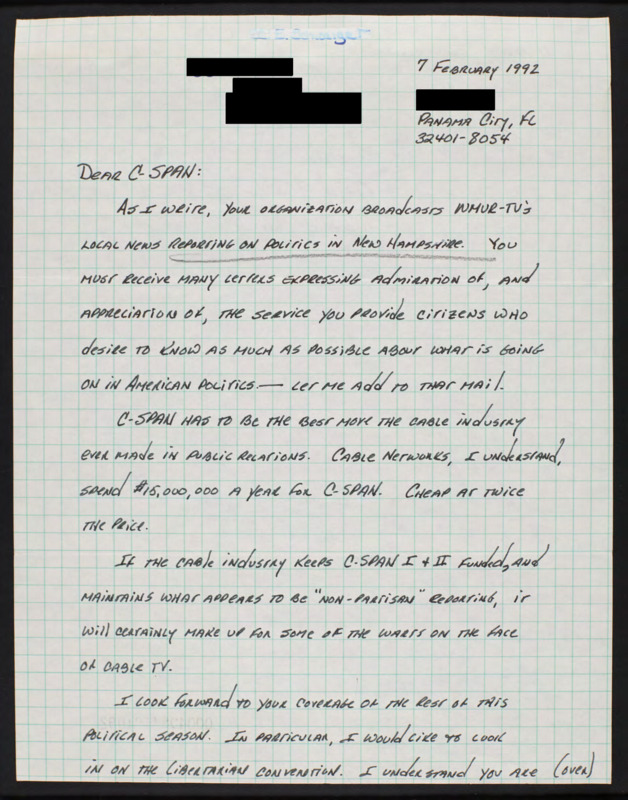 7 February 1992
Panama City, FL
32401-8054
Dear C-SPAN:
As I write, your organization broadcasts WMUR-TV's
local news reporting on politics in New Hampshire. You
must receive many letters expressing admiration of, and
appreciation of, the service you provide citizens who
desire to know as much as possible about what is going
on in American politics.— Let me add to that mail.
C-SPAN has to be the best move the cable industry
ever made in public relations. Cable networks, I understand,
spend $15,000,000 a year for C-SPAN. Cheap at twice
the price.
If the cable industry keeps C-SPAN I & II funded, and
maintains what appears to be "non-partisan" reporting, it
will certainly make up for some of the warts on the face
of cable TV.
I look forward to your coverage of the rest of this
political season. In particular, I would like to look
in on the Libertarian convention. I understand you are (over)